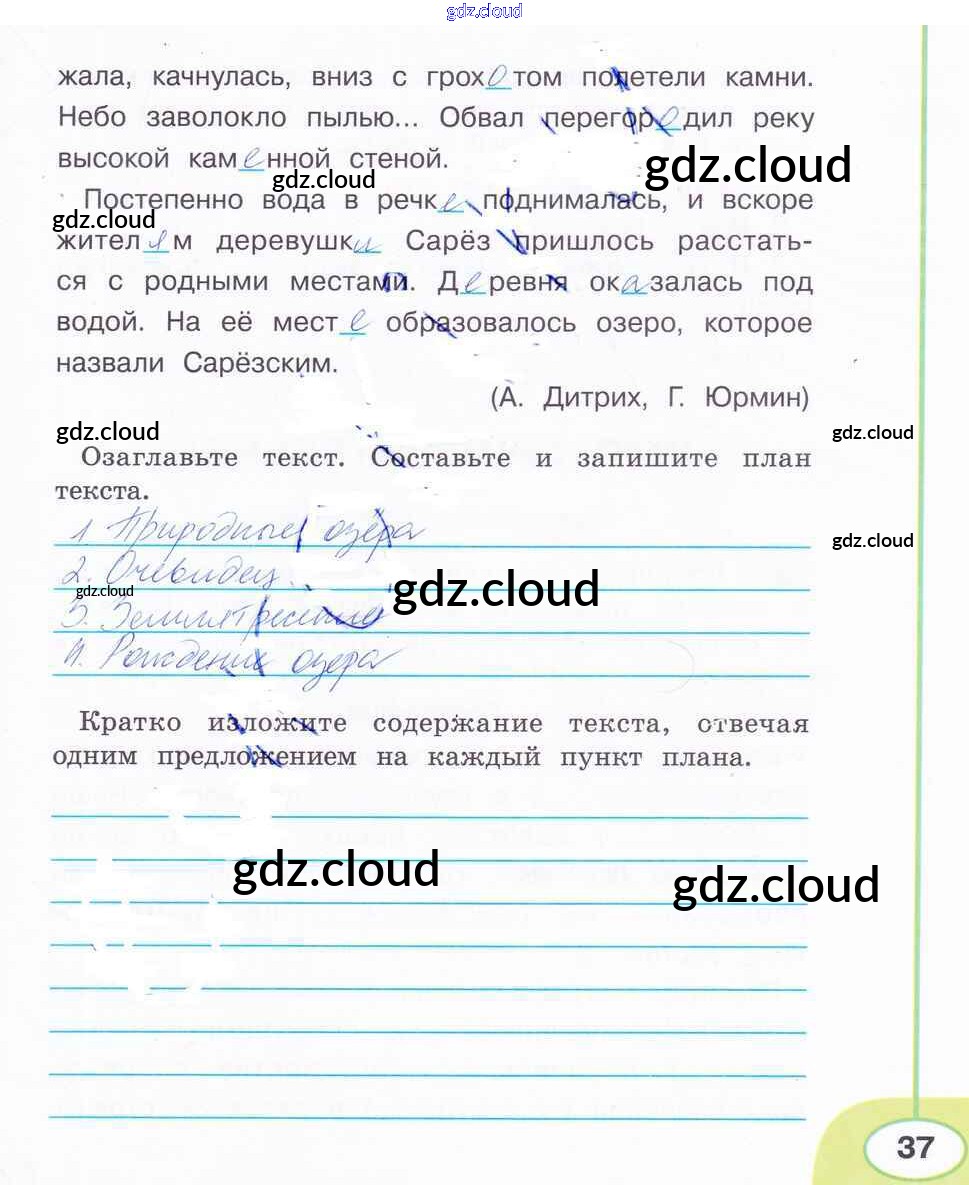 gdz.cloud
жала, качнулась, вниз с грохотом полетели камни.
Небо заволокло пылью... Обвал перегородил реку
высокой каменной стеной.
gdz.cloud
gdz.cloud
Постепенно вода в речке поднималась, и вскоре
gdz.cloud
жителям деревушки Сарёз пришлось расстать-
ся с родными местами. Деревня оказалась под
водой. На её месте образовалось озеро, которое
назвали Сарёзским.
(А. Дитрих, Г. Юрмин)
gdz.cloud
gdz.cloud
Озаглавьте текст. Составьте и запишите план
текста.
1. Природные озёра
gdz.cloud
2. Очевидец.
gdz.cloud
gdz.cloud
3. Землетресение
4. Рождение озера
Кратко изложите содержание текста, отвечая
одним предложением на каждый пункт плана.
gdz.cloud
gdz.cloud
37